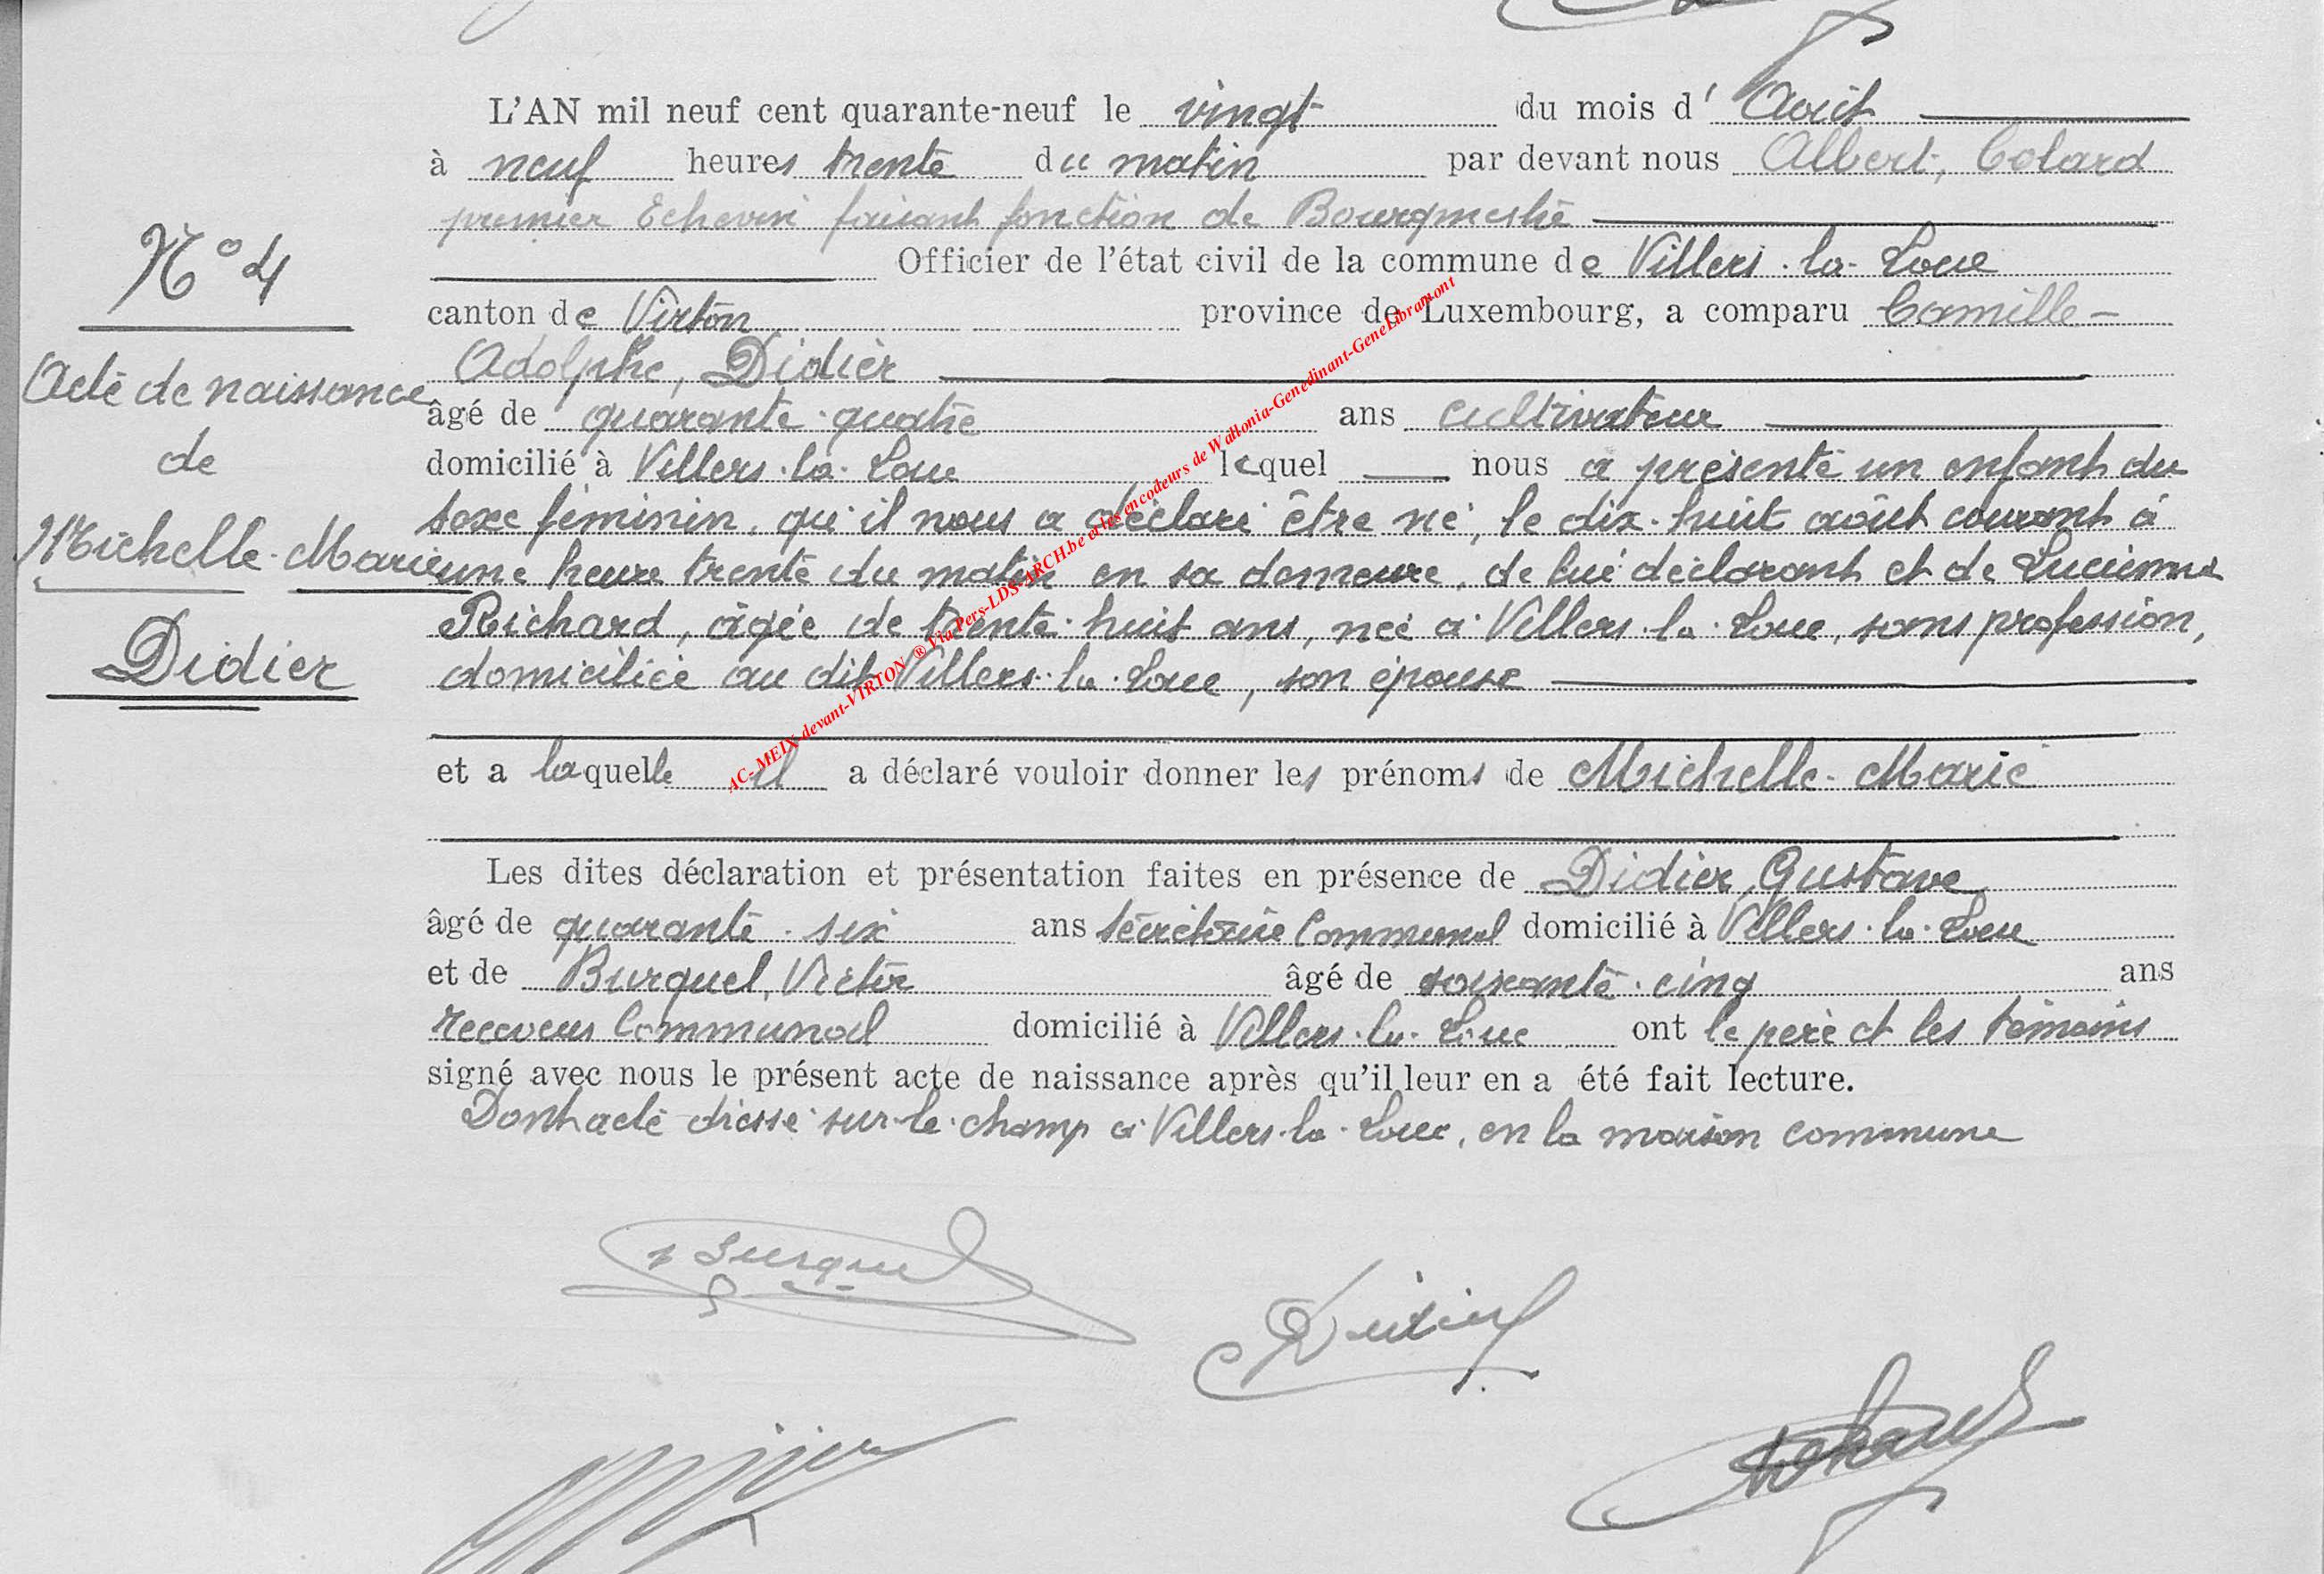 L'AN mil neuf cent quarante-neuf le vingt du mois d' Août
à neuf heures trente du matin par devant nous Albert, Colard
premier Echevin faisant fonction de Bourgmestre
N° 4
Officier de l'état civil de la commune de Villers-la-Loue
canton de Virton province de Luxembourg, a comparu Camille-
Adolphe, Didier
Acte de naissance
âgé de quarante-quatre ans cultivateur
de
domicilié à Villers-la-Loue lequel nous a présenté un enfant du
sexe féminin, qu'il nous a déclaré être né, le dix-huit août courant à
Michelle-Marie
une heure trente du matin en sa demeure, de lui déclarant et de Lucienne
Richard, âgée de trente-huit ans, née à Villers-la-Loue, sans profession,
Didier
domiciliée au dit Villers-la-Loue, son épouse
et a laquelle il a déclaré vouloir donner les prénoms de Michelle-Marie
Les dites déclaration et présentation faites en présence de Didier, Gustave
âgé de quarante-six ans secrétaire Communal domicilié à Villers-la-Loue
et de Burquel, Victor âgé de soixante-cinq ans
receveur Communal domicilié à Villers-la-Loue ont le père et les témoins
signé avec nous le présent acte de naissance après qu'il leur en a été fait lecture.
Dont acte dressé sur-le-champ à Villers-la-Loue, en la maison commune
AC-MEIX-devant-VIRTON ® Via Pers-LDS-ARCH.be et les encodeurs de Wallonia-Genedinant-GeneLibramont
Burquel
Didier